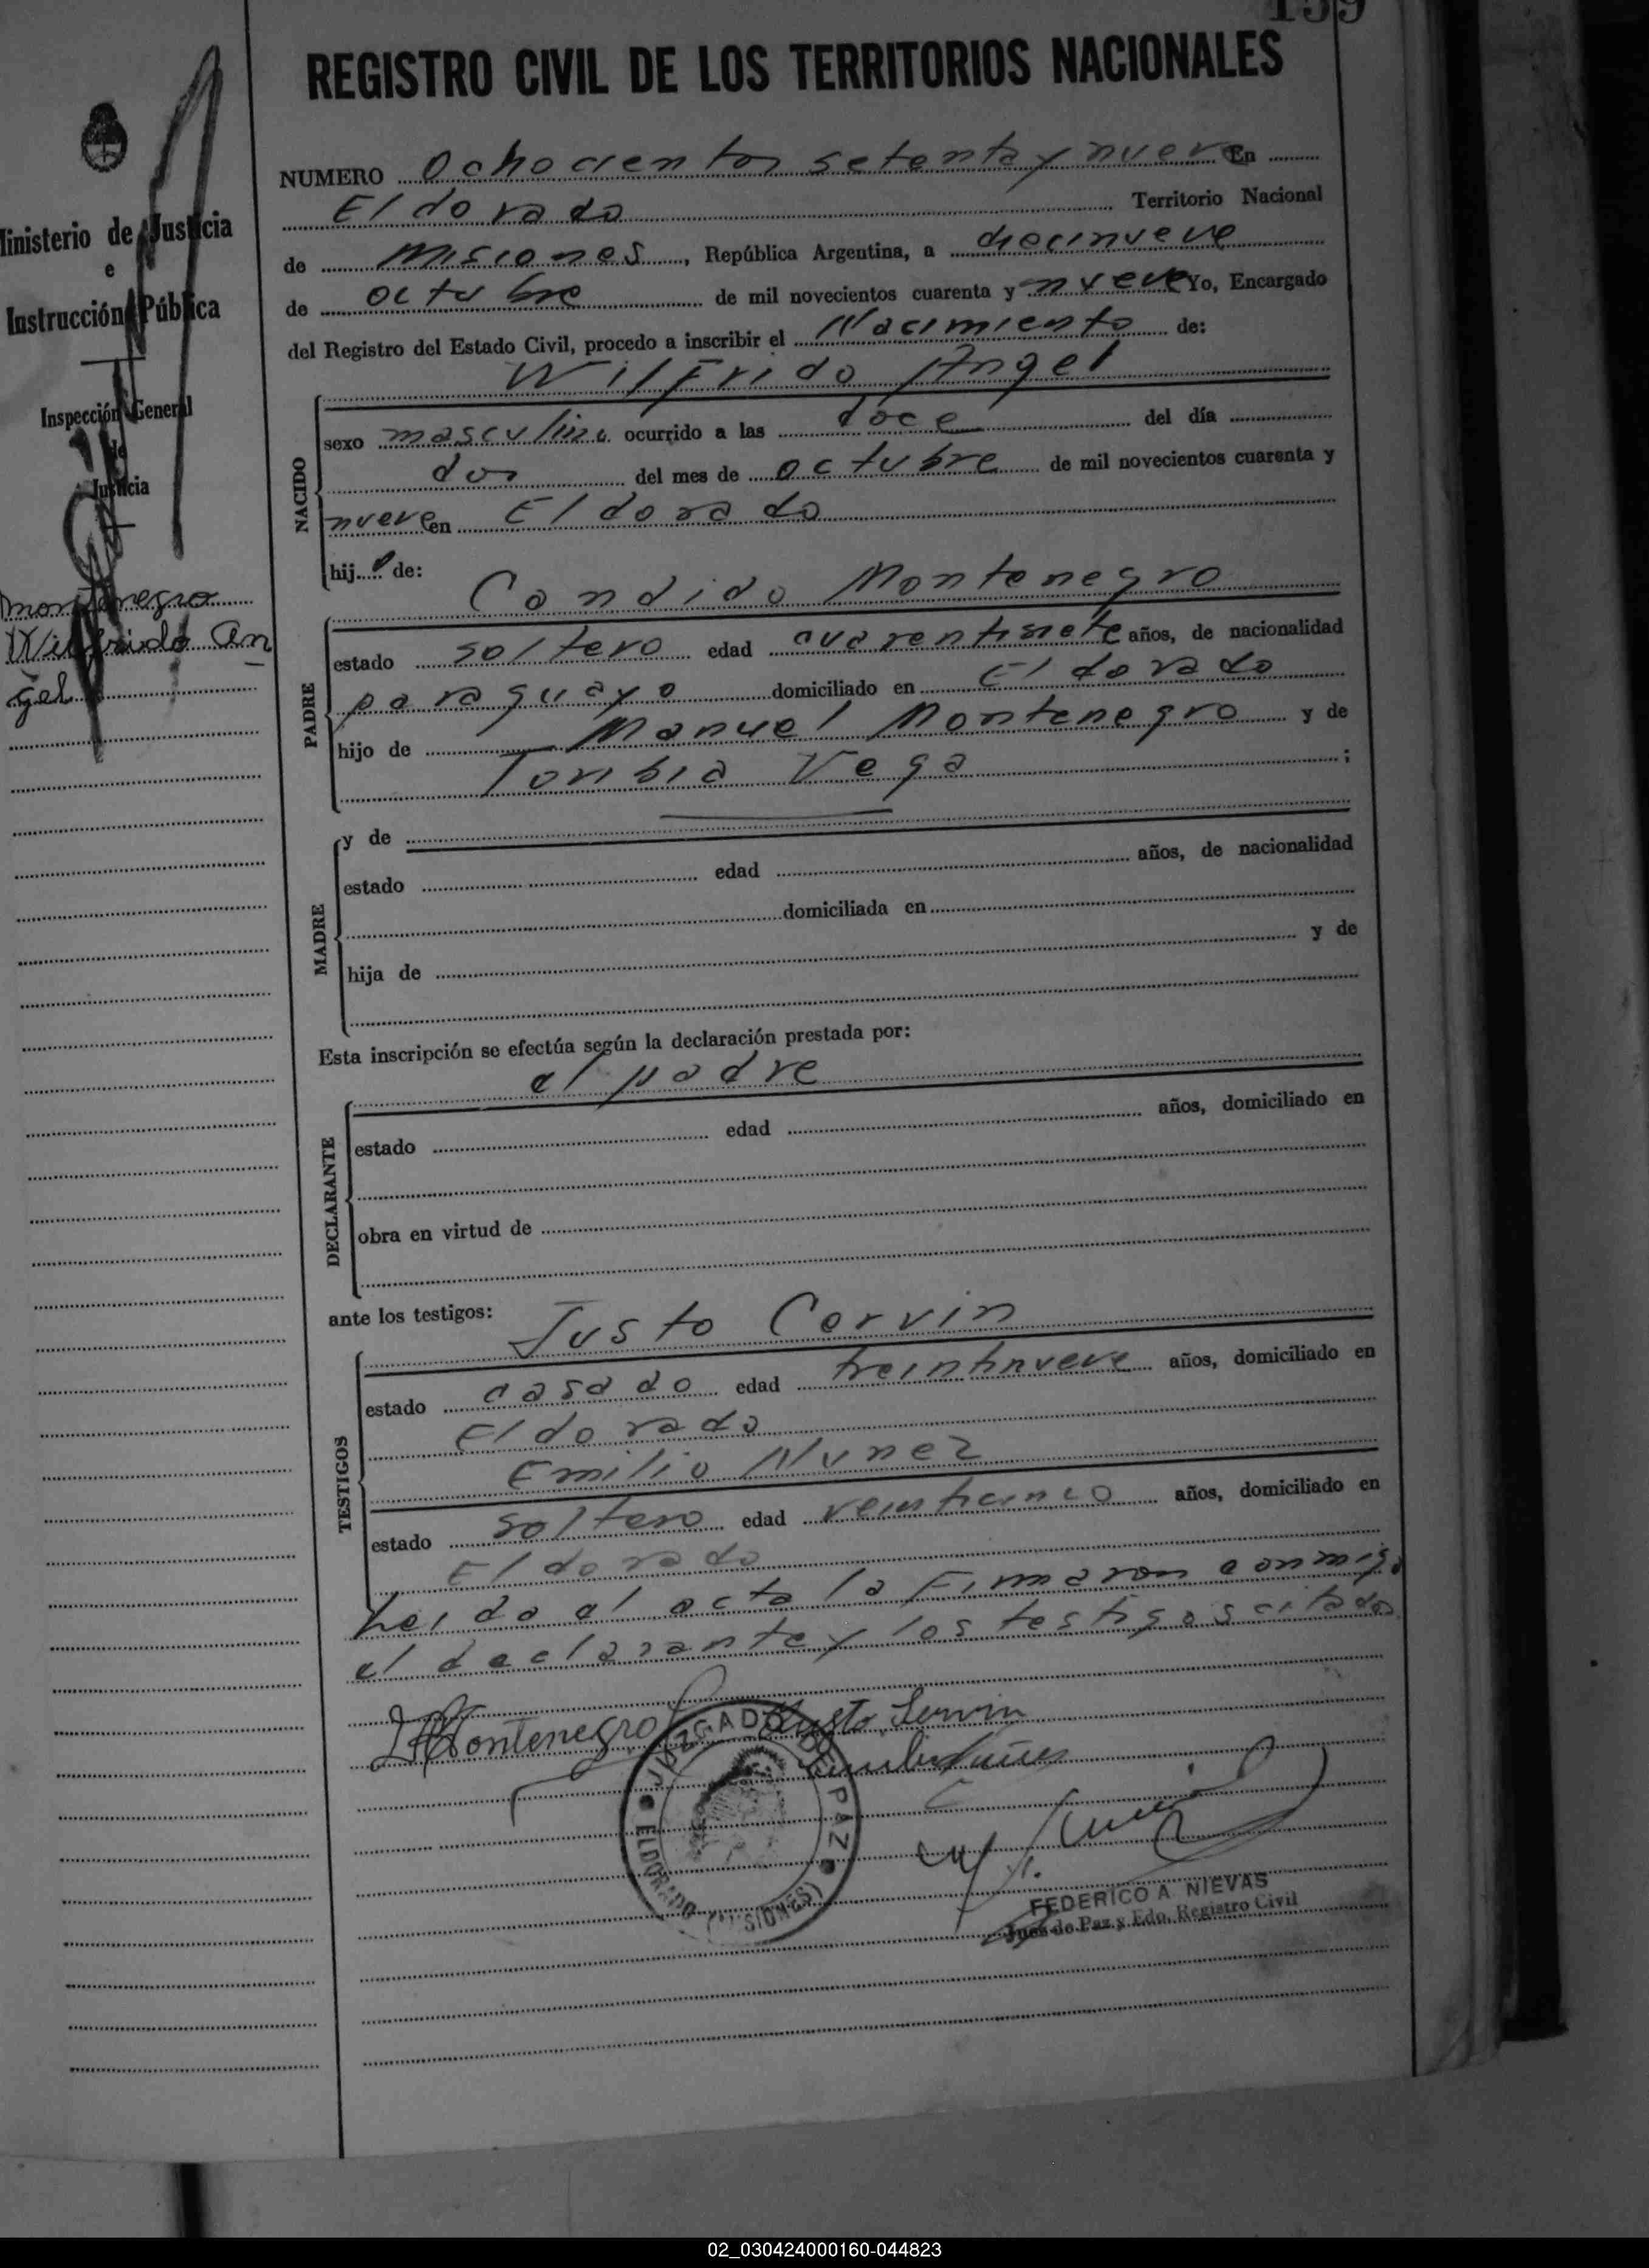 159
REGISTRO CIVIL DE LOS TERRITORIOS NACIONALES
Ministerio de Justicia
e
Instrucción Pública
Inspección General
de
Justicia
Montenegro
Wilfrido An
gel
NUMERO Ochocientos setenta y nueve En
Eldorado Territorio Nacional
de Misiones, República Argentina, a diecinueve
de octubre de mil novecientos cuarenta y nueve Yo, Encargado
del Registro del Estado Civil, procedo a inscribir el Nacimiento de:
Wilfrido Angel
NACIDO
sexo masculino ocurrido a las doce del día
dos del mes de octubre de mil novecientos cuarenta y
nueve en Eldorado
hijo de:
Candido Montenegro
PADRE
estado soltero edad cuarentisiete años, de nacionalidad
paraguayo domiciliado en Eldorado
hijo de Manuel Montenegro y de
Toribia Vega ;
MADRE
y de
estado edad años, de nacionalidad
domiciliada en
hija de y de
Esta inscripción se efectúa según la declaración prestada por:
el padre
DECLARANTE
estado edad años, domiciliado en
obra en virtud de
ante los testigos:
Justo Cervin
TESTIGOS
estado casado edad treintinueve años, domiciliado en
Eldorado
Emilio Nunez
estado soltero edad veinticinco años, domiciliado en
Eldorado
Leida el acta la Firmaron conmigo
el declarante y los testigos citados
Montenegro Justo Servin
JUZGADO DE PAZ
ELDORADO (MISIONES)
FEDERICO A. NIEVAS
Juez de Paz y Edo. Registro Civil
02_030424000160-044823